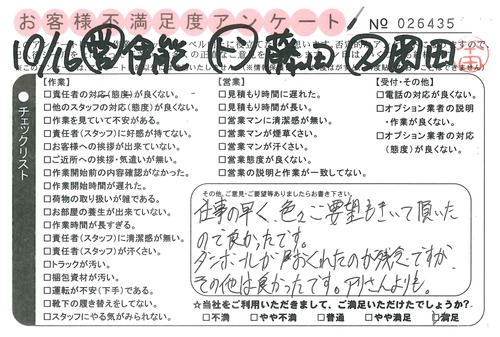 お客様不満足度アンケート
No 026435
10/16 営 食能 ド 藤田 2 安田
チェックリスト
【作業】
□責任者の対応(態度)が良くない。
□他のスタッフの対応(態度)が良くない。
□作業を見ていて不安がある。
□責任者(スタッフ)に好感が持てない。
□お客様への挨拶が出来ていない。
□ご近所への挨拶・気遣いが無い。
□作業開始前の内容確認がなかった。
□作業開始時間が遅れた。
□荷物の取り扱いが雑である。
□お部屋の養生が出来ていない。
□作業時間が長すぎる。
□責任者(スタッフ)に清潔感が無い。
□責任者(スタッフ)が汗くさい。
□トラックが汚い。
□梱包資材が汚い。
□運転が不安(下手)である。
□靴下の履き替えをしてない。
□スタッフにやる気がみられない。
【営業】
□見積もりが時間に遅れた。
□見積もり時間が長い。
□営業マンに清潔感が無い。
□営業マンが煙草くさい。
□営業マンが汗くさい。
□営業態度が良くない。
□営業の説明と作業が一致してない。
【受付・その他】
□電話の対応が良くない。
□オプション業者の説明
・作業が良くない。
□オプション業者の対応
(態度)が良くない。
その他、ご意見・ご要望等ありましたらお書き下さい。
仕事の早く、色々ご要望もきいて頂いた
ので良かったです。
ダンボールが戸おくれたのが残念ですが、
その他は良かったです。アリさんよりも。
☆当社をご利用いただきまして、ご満足いただけたでしょうか?
□不満 □やや不満 □普通 □やや満足 □満足